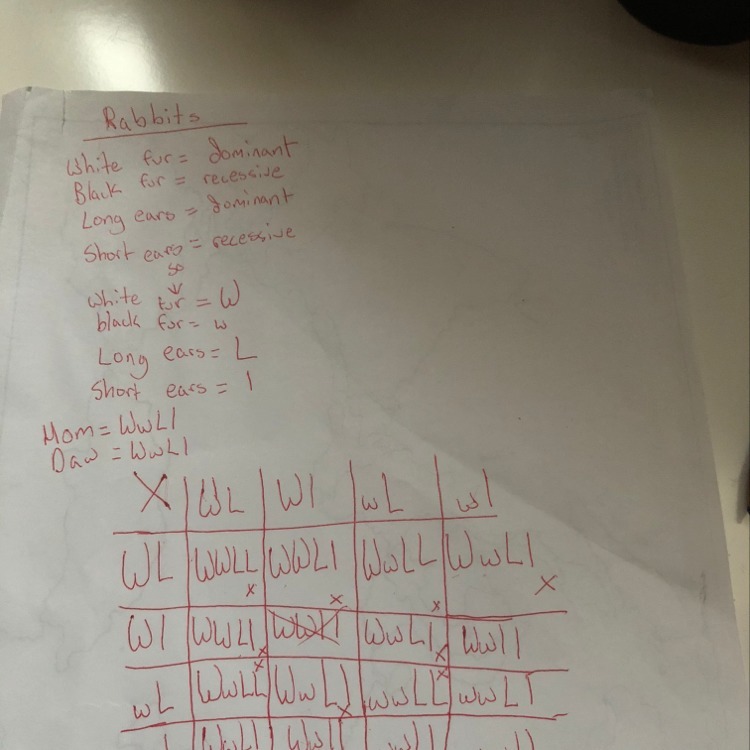 Rabbits
White fur = dominant
Black fur = recessive
Long ears = dominant
Short ears = recessive
so
White fur = W
black fur = w
Long ears = L
Short ears = l
Mom = WwLl
= WwLl
X WL Wl wL wl
WL WWLL WWLl WwLL WwLl
Wl WWLl WWll WwLl Wwll
wL WwLL WwLl wwLL wwLl